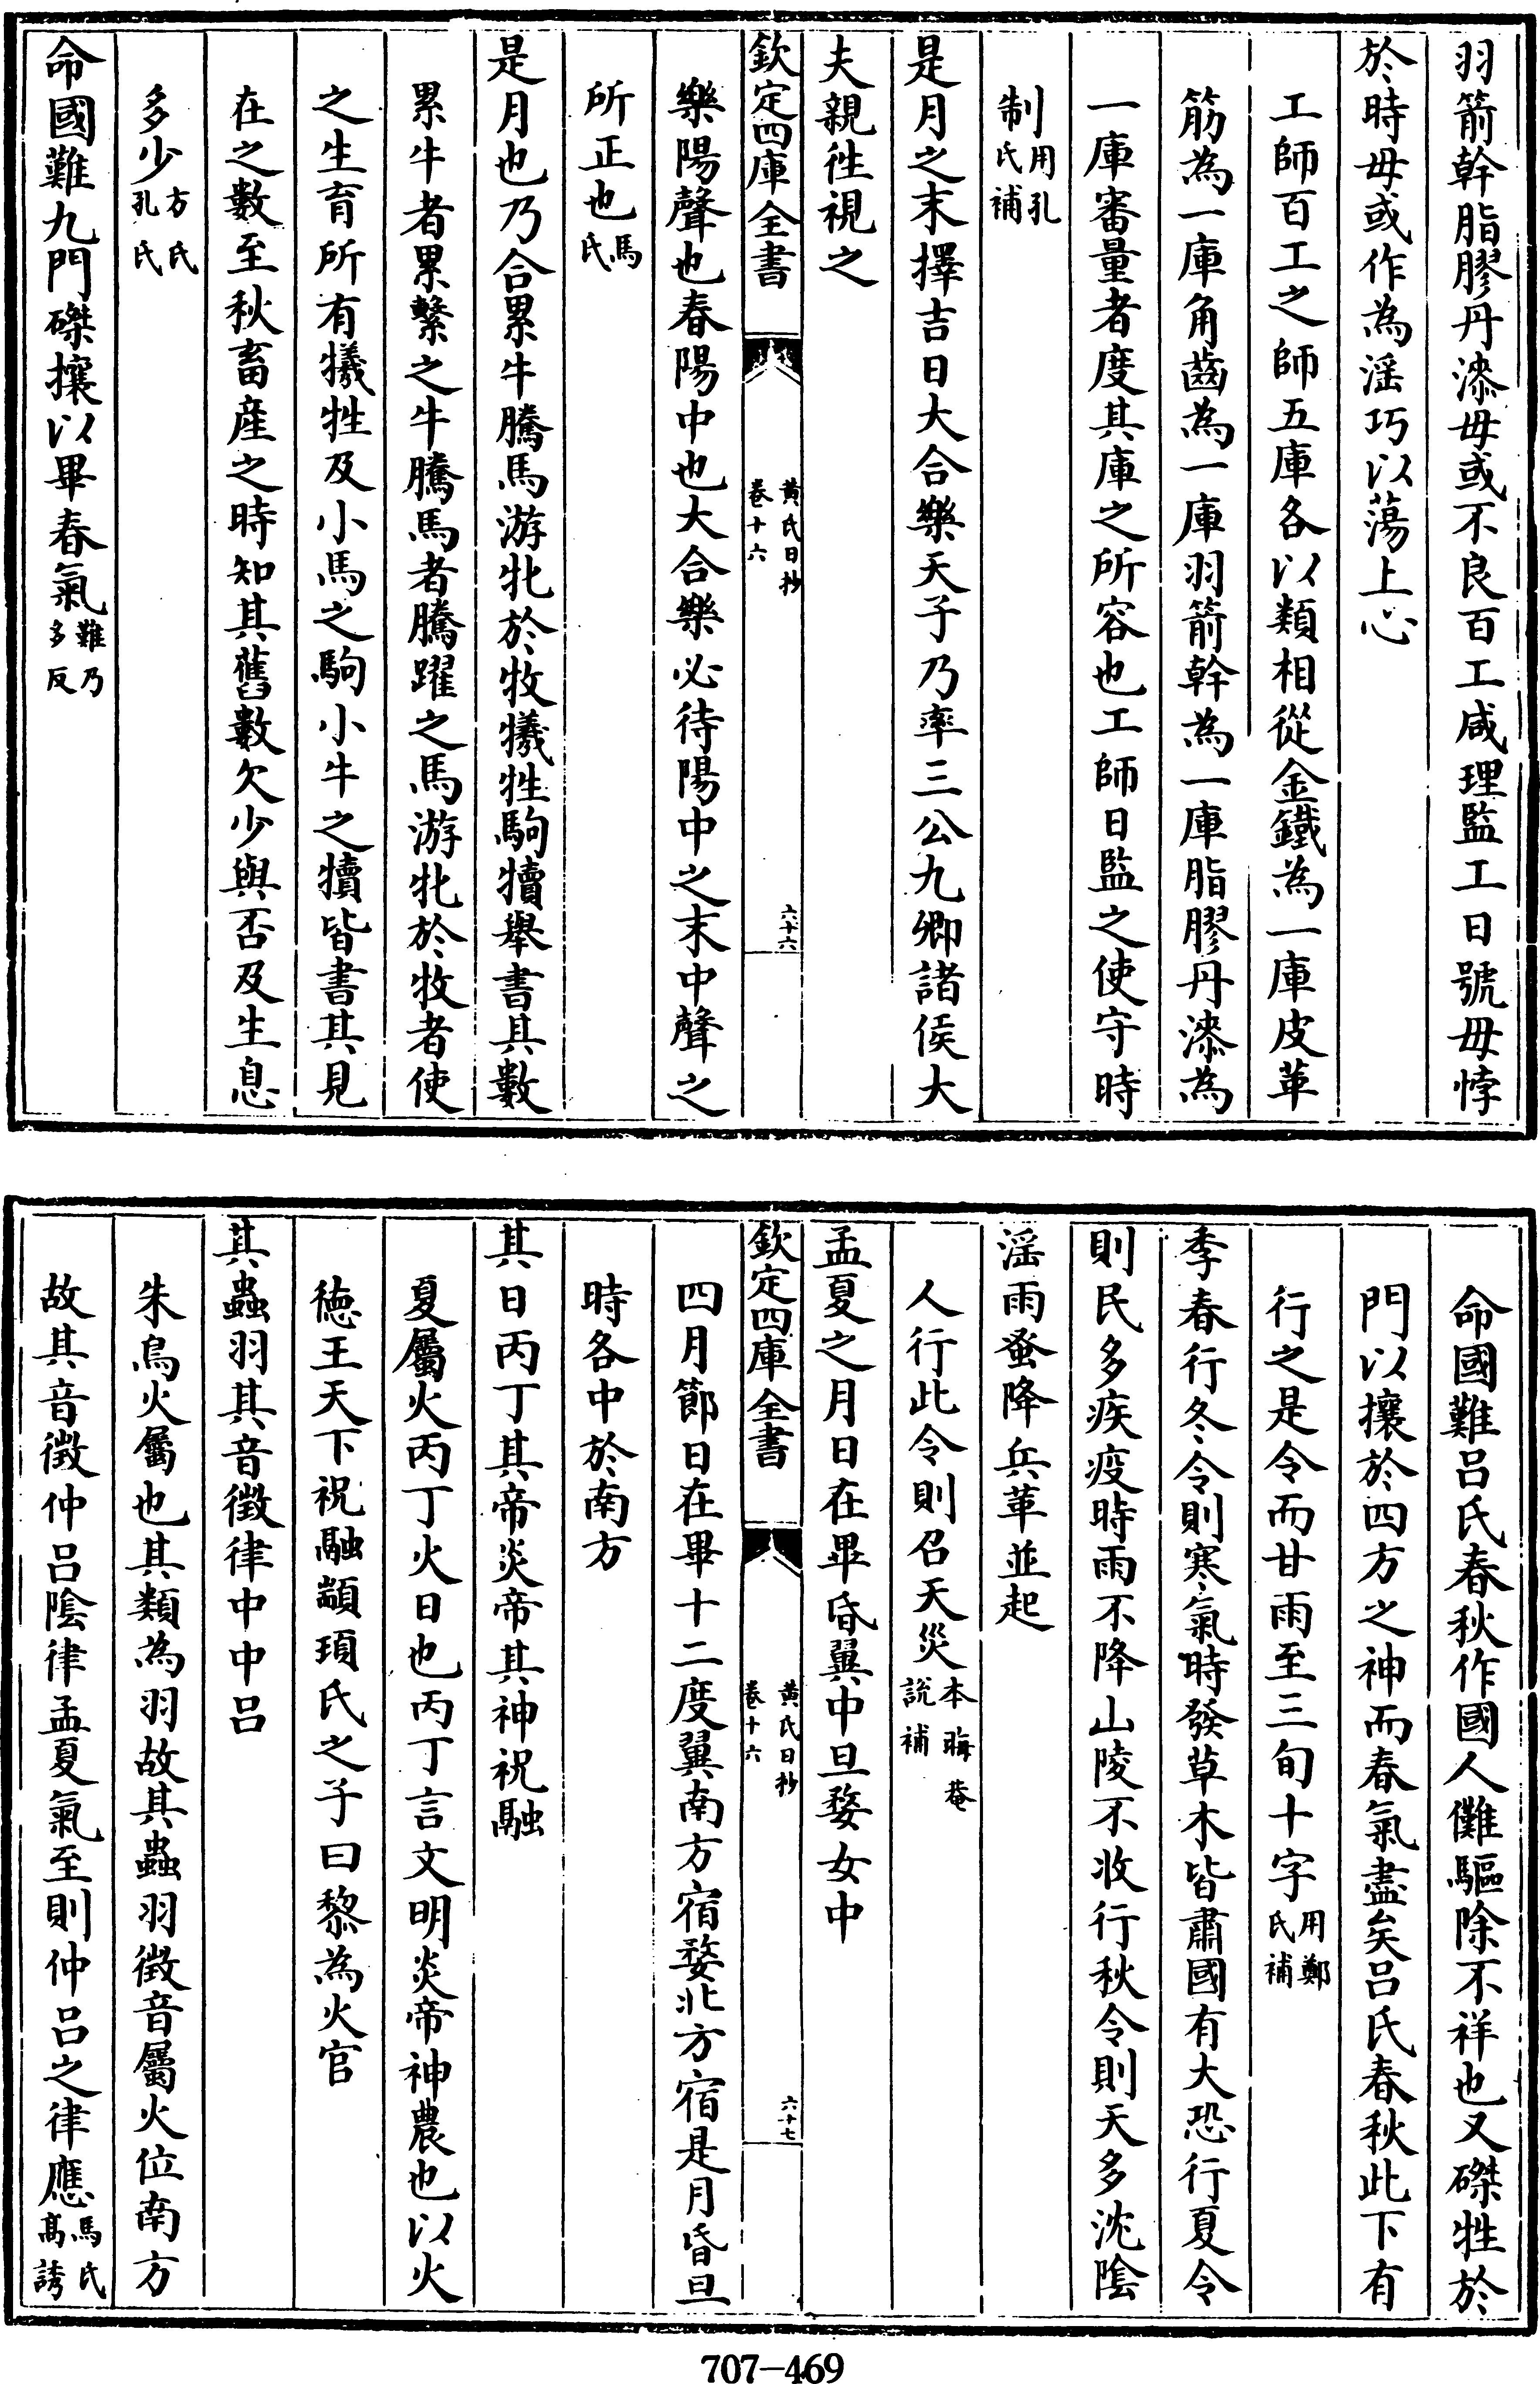 羽箭幹脂膠丹漆毋或不良百工咸理監工日號毋悖
於時毋或作為滛巧以蕩上心
工師百工之師五庫各以類相從金鐵為一庫皮革
筋為一庫角齒為一庫羽箭幹為一庫脂膠丹漆為
一庫審量者度其庫之所容也工師日監之使守時
制用孔氏補
是月之末擇吉日大合樂天子乃率三公九卿諸侯大
夫親徃視之
欽定四庫全書 黄氏日抄卷十六 六十六
樂陽聲也春陽中也大合樂必待陽中之末中聲之
所正也馬氏
是月也乃合累牛騰馬游牝於牧犧牲駒犢舉書其數
累牛者累繫之牛騰馬者騰躍之馬游牝於牧者使
之生育所有犧牲及小馬之駒小牛之犢皆書其見
在之數至秋畜産之時知其舊數欠少與否及生息
多少方氏孔氏
命國難九門磔攘以畢春氣難乃多反
命國難吕氏春秋作國人儺驅除不祥也又磔牲於
門以攘於四方之神而春氣盡矣吕氏春秋此下有
行之是令而甘雨至三旬十字用鄭氏補
季春行冬令則寒氣時發草木皆肅國有大恐行夏令
則民多疾疫時雨不降山陵不收行秋令則天多沈陰
滛雨蚤降兵革並起
人行此令則召天災本晦菴說補
孟夏之月日在畢昏翼中旦婺女中
欽定四庫全書 黄氏日抄卷十六 六十七
四月節日在畢十二度翼南方宿婺北方宿是月昏旦
時各中於南方
其日丙丁其帝炎帝其神祝融
夏屬火丙丁火日也丙丁言文明炎帝神農也以火
德王天下祝融顓頊氏之子曰黎為火官
其蟲羽其音徴律中中吕
朱鳥火屬也其類為羽故其蟲羽徴音屬火位南方
故其音徴仲吕陰律孟夏氣至則仲吕之律應馬氏高誘
707-469